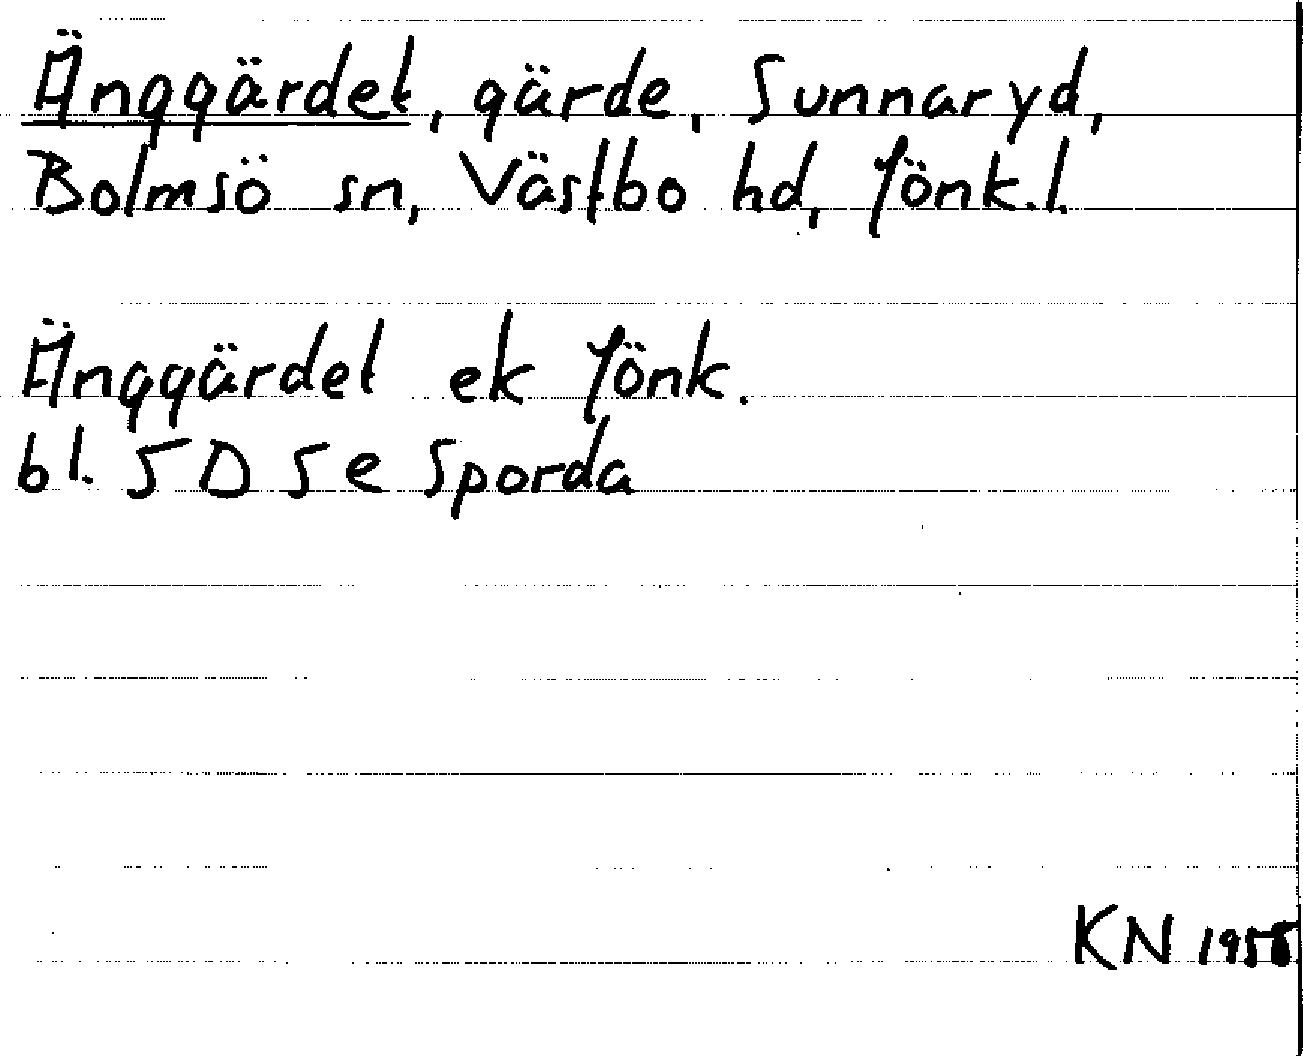 Änggärdet, gärde, Sunnaryd,
Bolmsö sn, Västbo hd, Jönk.l.
Änggärdet ek Jönk.
bl. 5D 5e Sporda
KN